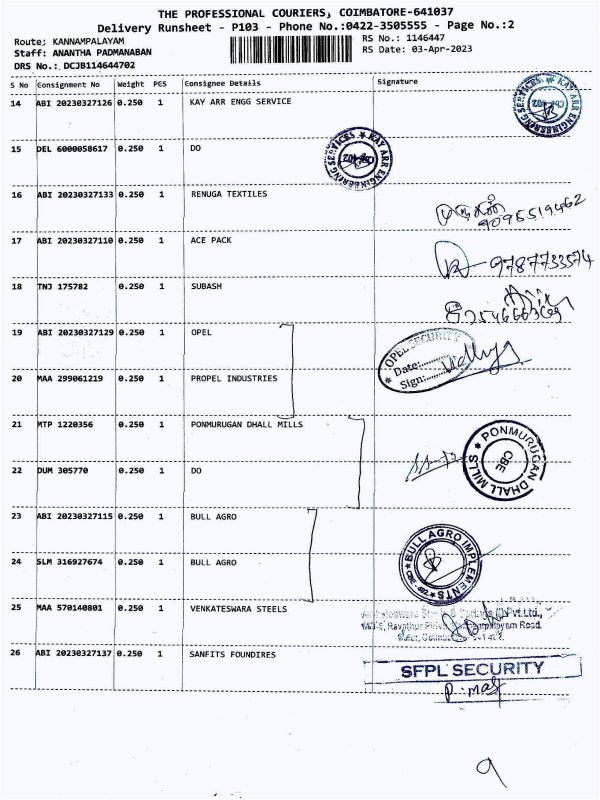 THE PROFESSIONAL COURIERS, COIMBATORE-641037
Delivery Runsheet - P103 - Phone No.:0422-3505555 - Page No.:2
Route; KANNAMPALAYAM RS No.: 1146447
Staff: ANANTHA PADMANABAN RS Date: 03-Apr-2023
DRS No.: DCJB114644702
S No Consignment No Weight PCS Consignee Details Signature
14 ABI 20230327126 0.250 1 KAY ARR ENGG SERVICE
KAY ARR ENGINEERING SERVICES
15 DEL 6000058617 0.250 1 DO
KAY ARR ENGINEERING SERVICES
16 ABI 20230327133 0.250 1 RENUGA TEXTILES
17 ABI 20230327110 0.250 1 ACE PACK
9787733574
18 TNJ 175782 0.250 1 SUBASH
19 ABI 20230327129 0.250 1 OPEL
OPEL SECURITY
Date:
Sign:
20 MAA 299061219 0.250 1 PROPEL INDUSTRIES
21 MTP 1220356 0.250 1 PONMURUGAN DHALL MILLS
PONMURUGAN DHALL MILLS
CBE
22 DUM 305770 0.250 1 DO
23 ABI 20230327115 0.250 1 BULL AGRO
BULL AGRO IMPLEMENTS
24 SLM 316927674 0.250 1 BULL AGRO
25 MAA 570140801 0.250 1 VENKATESWARA STEELS
Pvt.Ltd.,
Road
26 ABI 20230327137 0.250 1 SANFITS FOUNDIRES
SFPL SECURITY
9